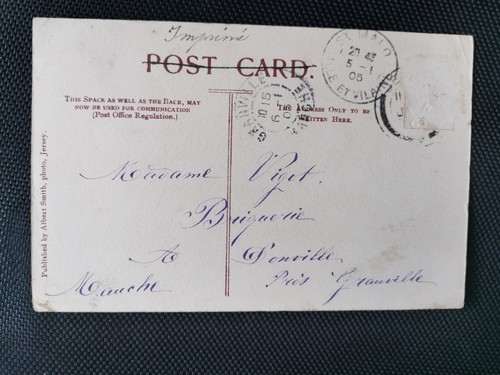 Imprimé
POST CARD.
ST MALO
20 45
5 - 1
05
ET VILAINE
GRANVILLE
1915
6 - 1
MANCHE
THIS SPACE AS WELL AS THE BACK, MAY
NOW BE USED FOR COMMUNICATION
(Post Office Regulation.)
THE ADDRESS ONLY TO BE
WRITTEN HERE.
Published by Albert Smith, photo, Jersey.
Madame Vigot.
Briquerie
A Donville
Manche Près Granville